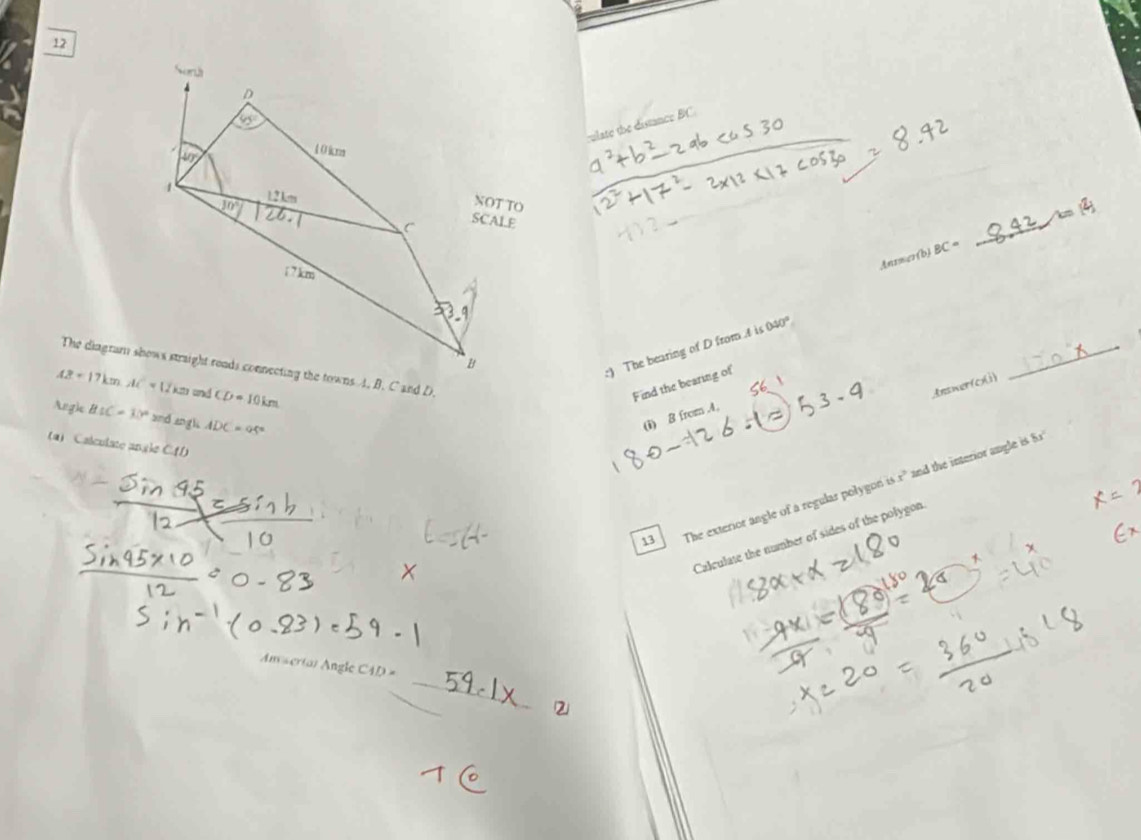 12
North
D
95°
40°
10 km
12 km
30°
126.1
C
NOT TO
SCALE
17 km
53.9
B
The diagram shows straight roads connecting the towns A, B, C and D.
AB = 17 km, AC = 12 km and CD = 10 km.
Angle BAC = 30° and angle ADC = 95°
(a) Calculate angle CAD
Sin 95 = sin b
12 10
Sin95×10 = 0-83
12
x
Sin⁻¹(0.83)=59-1
Answer(a) Angle CAD =
59.1x
[2]
ulate the distance BC.
a²+b²-2ab cos 30
12²+17²- 2×12×17 cos30 = 8.42
Answer(b) BC =
8.42
) The bearing of D from A is 040°
Find the bearing of
(i) B from A,
56.1
180-126.1=53-9
Answer(c)(i)
x
13
The exterior angle of a regular polygon is x° and the interior angle is 8x°
Calculate the number of sides of the polygon.
8x+x=180
9x = 180 = 20
9 9
x = 20 = 360 = 18
20